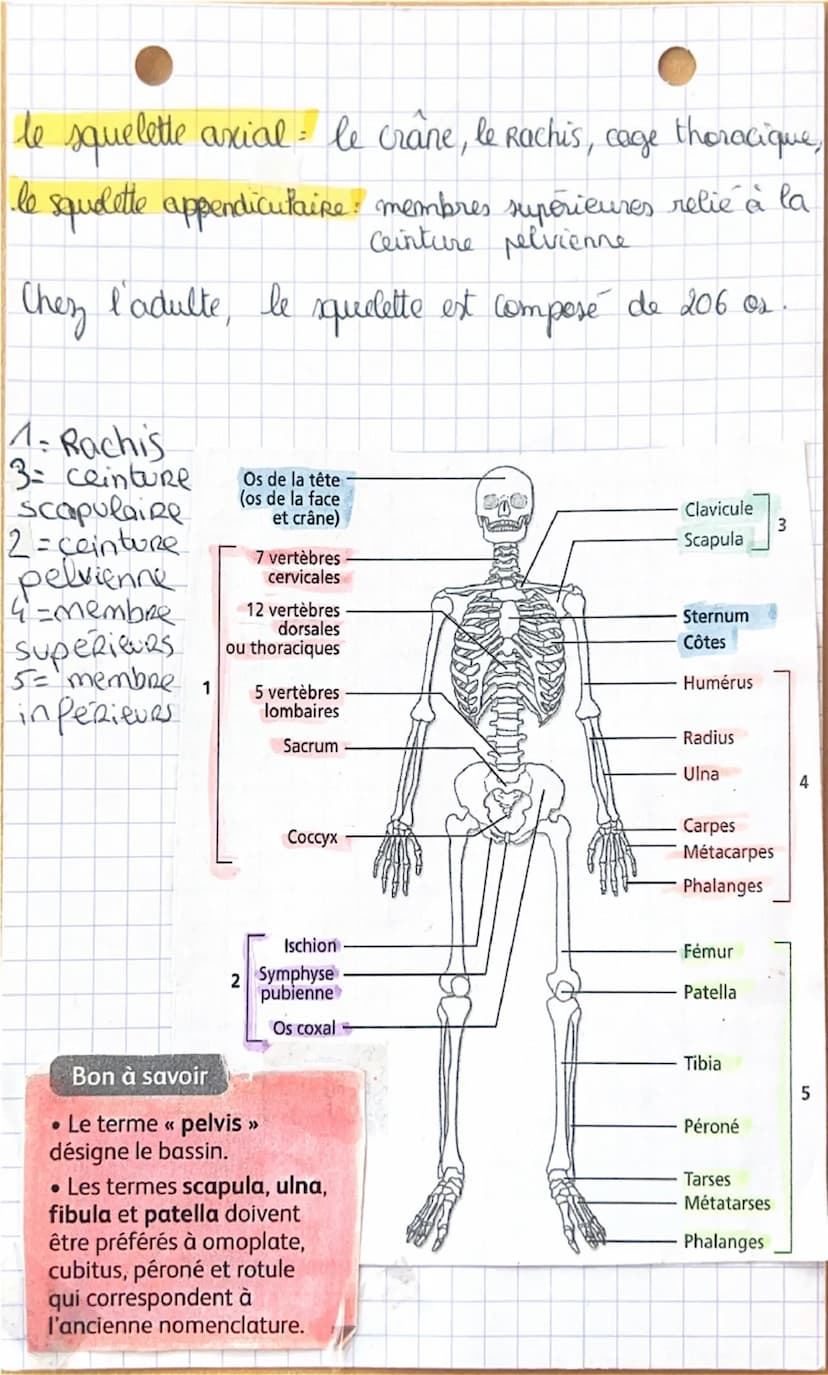 le squelette axial : le crâne, le Rachis, cage thoracique,
le squelette appendiculaire : membres supérieures relié à la
ceinture pelvienne
Chez l'adulte, le squelette est composé de 206 os.
1 = Rachis
3 = ceinture
scapulaire
2 = ceinture
pelvienne
4 = membre
supérieurs
5 = membre
inférieurs
Os de la tête
(os de la face
et crâne)
7 vertèbres
cervicales
12 vertèbres
dorsales
ou thoraciques
1
5 vertèbres
lombaires
Sacrum
Coccyx
2
Ischion
Symphyse
pubienne
Os coxal
Clavicule
Scapula
3
Sternum
Côtes
Humérus
Radius
Ulna
4
Carpes
Métacarpes
Phalanges
Fémur
Patella
Tibia
5
Péroné
Tarses
Métatarses
Phalanges
Bon à savoir
• Le terme « pelvis »
désigne le bassin.
• Les termes scapula, ulna,
fibula et patella doivent
être préférés à omoplate,
cubitus, péroné et rotule
qui correspondent à
l'ancienne nomenclature.